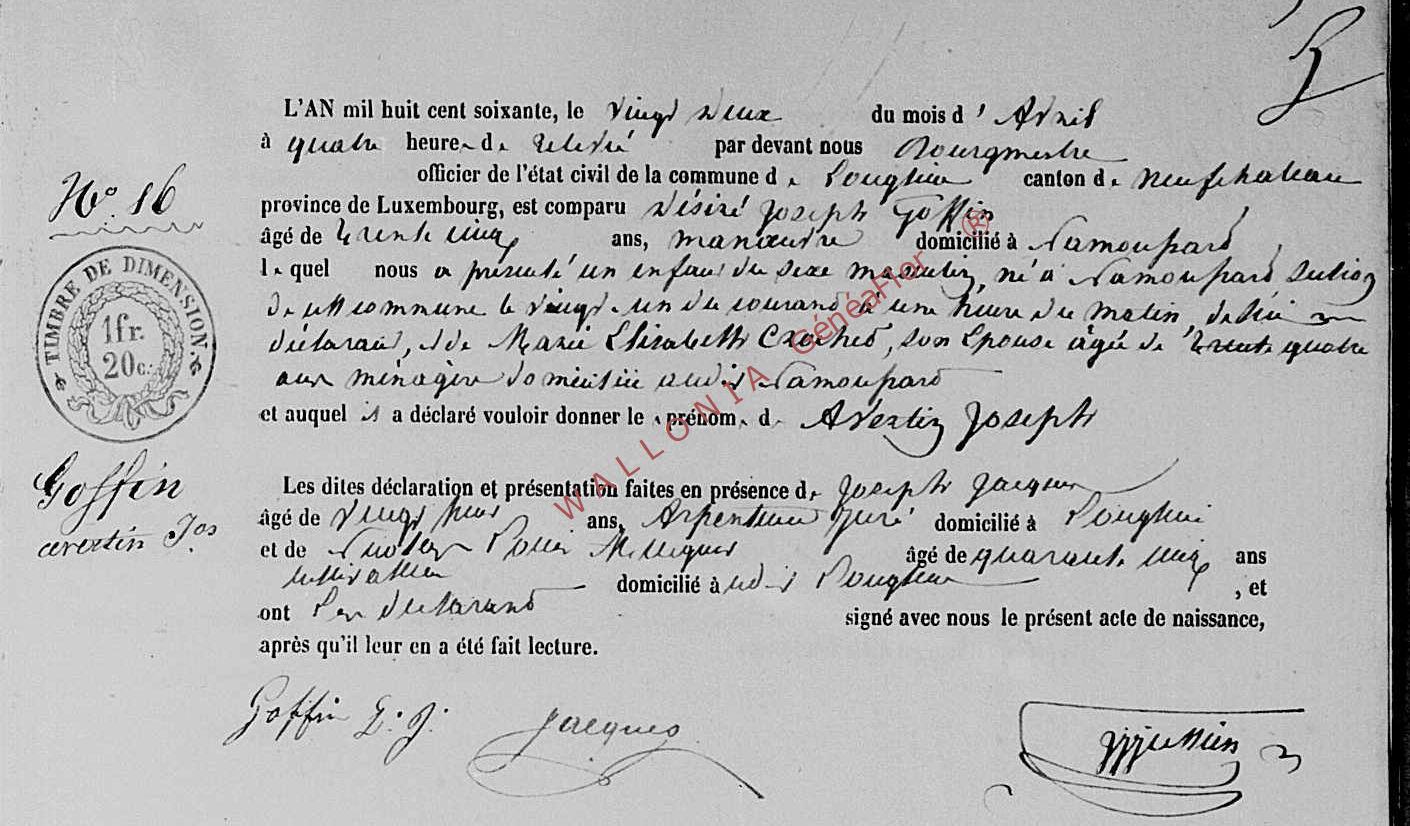 L'AN mil huit cent soixante, le vingt deux du mois d' Avril
à quatre heure de relevé par devant nous Bourgmestre
officier de l'état civil de la commune de Longlier canton de Neufchateau
N° 16
province de Luxembourg, est comparu Désiré Joseph Goffin
âgé de trente cinq ans, manœuvre domicilié à Namoussart
lequel nous a présenté un enfant du sexe masculin, né à Namoussart section
de cette commune le vingt un du courant à une heure du matin, de lui
déclarant, et de Marie Elisabeth Crochet, son épouse âgée de trente quatre
ans ménagère domiciliée audit Namoussart
et auquel il a déclaré vouloir donner le prénom de Avertin Joseph
TIMBRE DE DIMENSION.
1 fr.
20 c.
Goffin
avertin Jos
Les dites déclaration et présentation faites en présence de Joseph Jacques
âgé de vingt neuf ans, Arpenteur Juré domicilié à Longlier
et de Nicolas âgé de quarante cinq ans
domicilié à udit Longlier, et
ont le déclarant signé avec nous le présent acte de naissance,
après qu'il leur en a été fait lecture.
Goffin D. J. Jacques
WALLONIA GénéaFlor ®